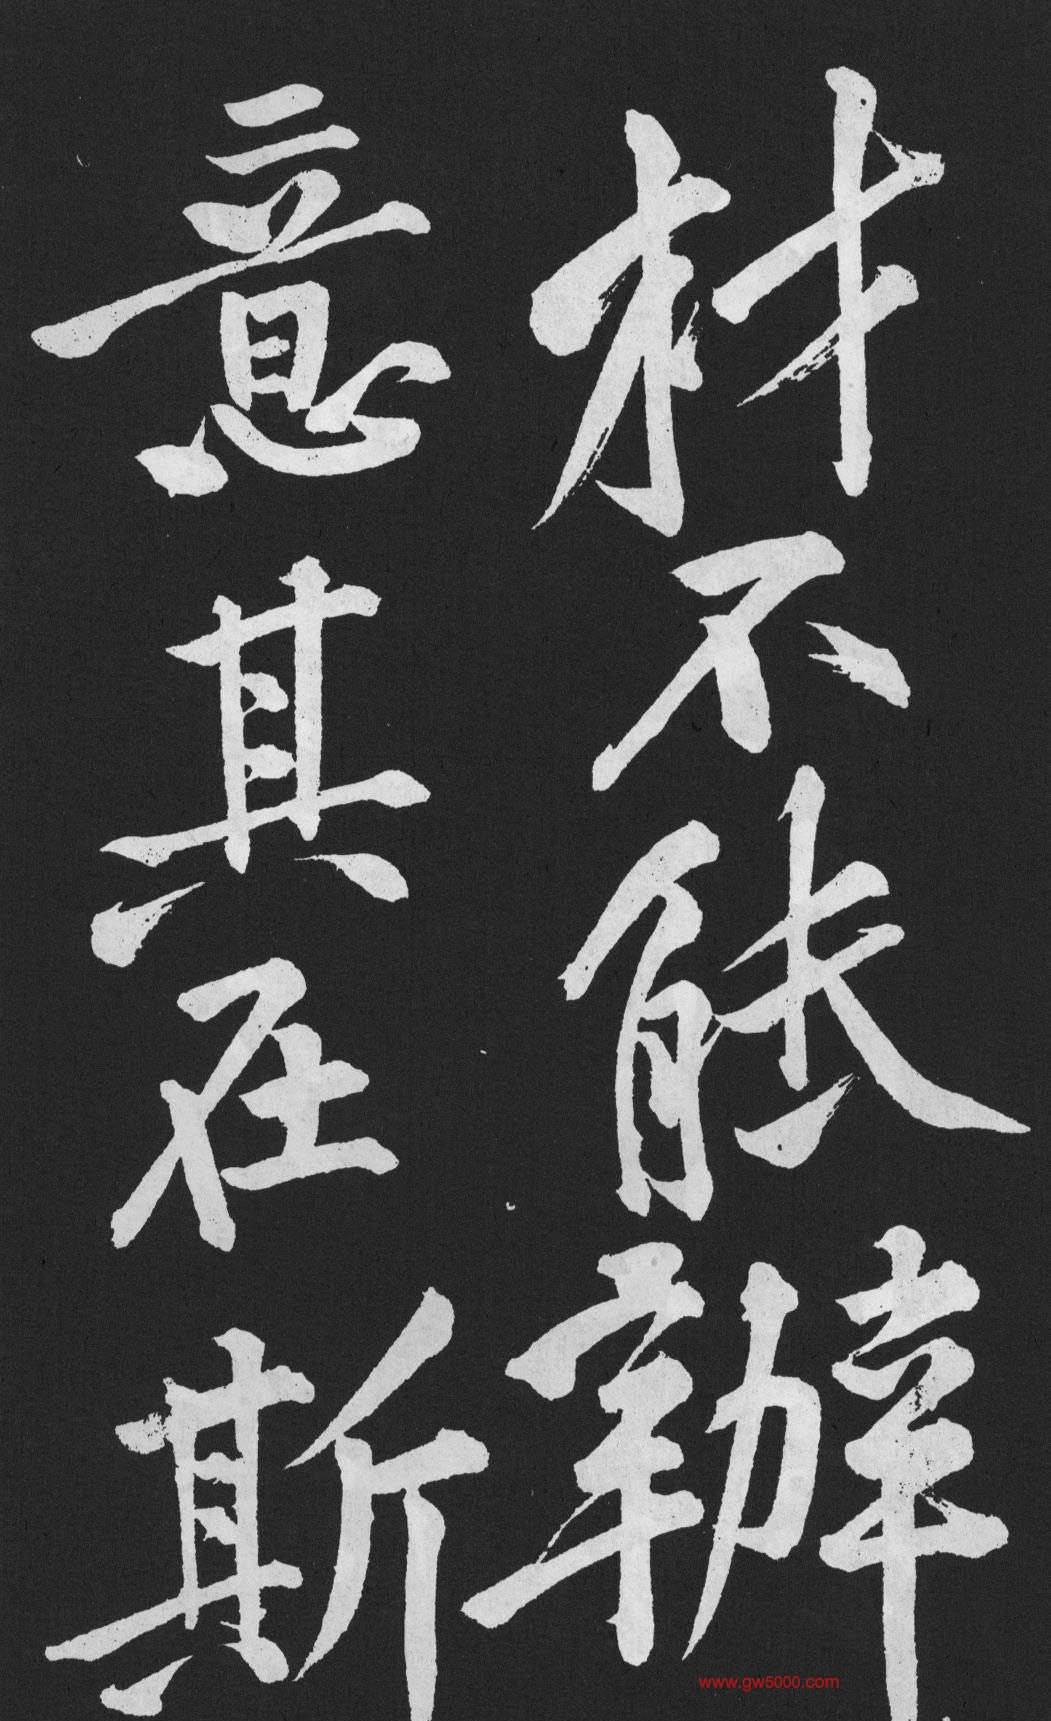 材不能辦
意其在斯
www.gw5000.com